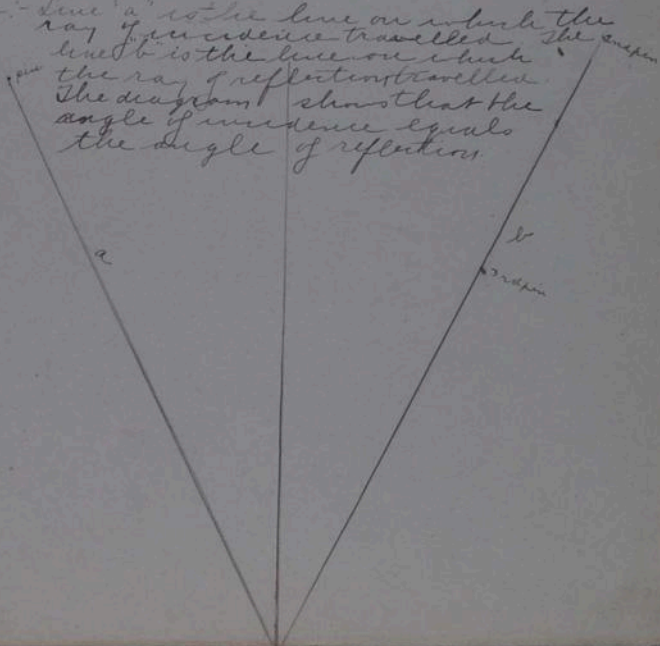 :- Line "a" is the line on which the
ray of incidence travelled The
line "b" is the line on which
the ray of reflection travelled.
The diagram shows that the
angle of incidence equals
the angle of reflection.
2nd pin
pin
a
b
3rd pin